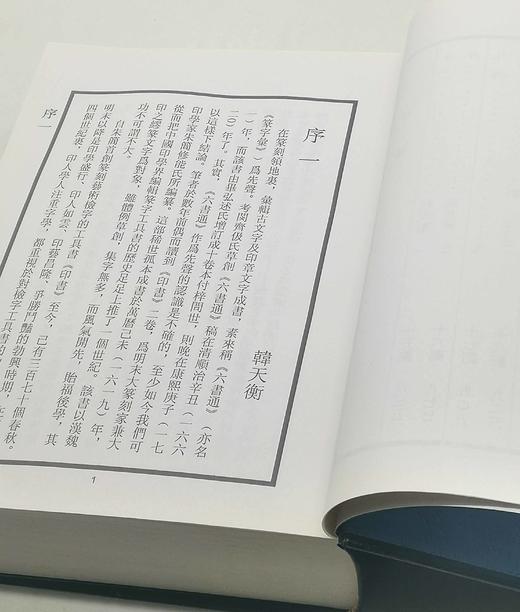 序一
韓天衡
在篆刻領地裏，彙輯古文字及印章文字成書，素來稱《六書通》（亦名
《篆字彙》）爲先聲。考閔齊伋氏草創《六書通》稿在清順治辛丑（一六六
一）年，而該書由畢弘述氏增訂成十卷本付梓問世，則晚在康熙庚子（一七
二〇）年了。其實，《六書通》作爲先聲的認識是不確的，至少如今我們可
以這樣下結論。筆者於數年前偶而讀到《印書》二卷，爲明末大篆刻家兼大
印學家朱簡修能氏所編纂。這部稀世孤本成書於萬曆己未（一六一九）年，
從而把中國印學界編輯篆字工具書的歷史足足上推了一個世紀。該書以漢魏
印之繆篆文字爲對象，雖體例草創，集字無多，而風氣開先，貽福後學，其
功不可謂不大。
自朱簡首創篆刻藝術檢字的工具書《印書》至今，已有三百七十個春秋。
明末以降是印學盛行、印人如雲、印藝昌隆、爭勝鬥豔的勃興時期，在
四個世紀裏，印人學人注重字學，都重視於對檢字工具書的
序一
1